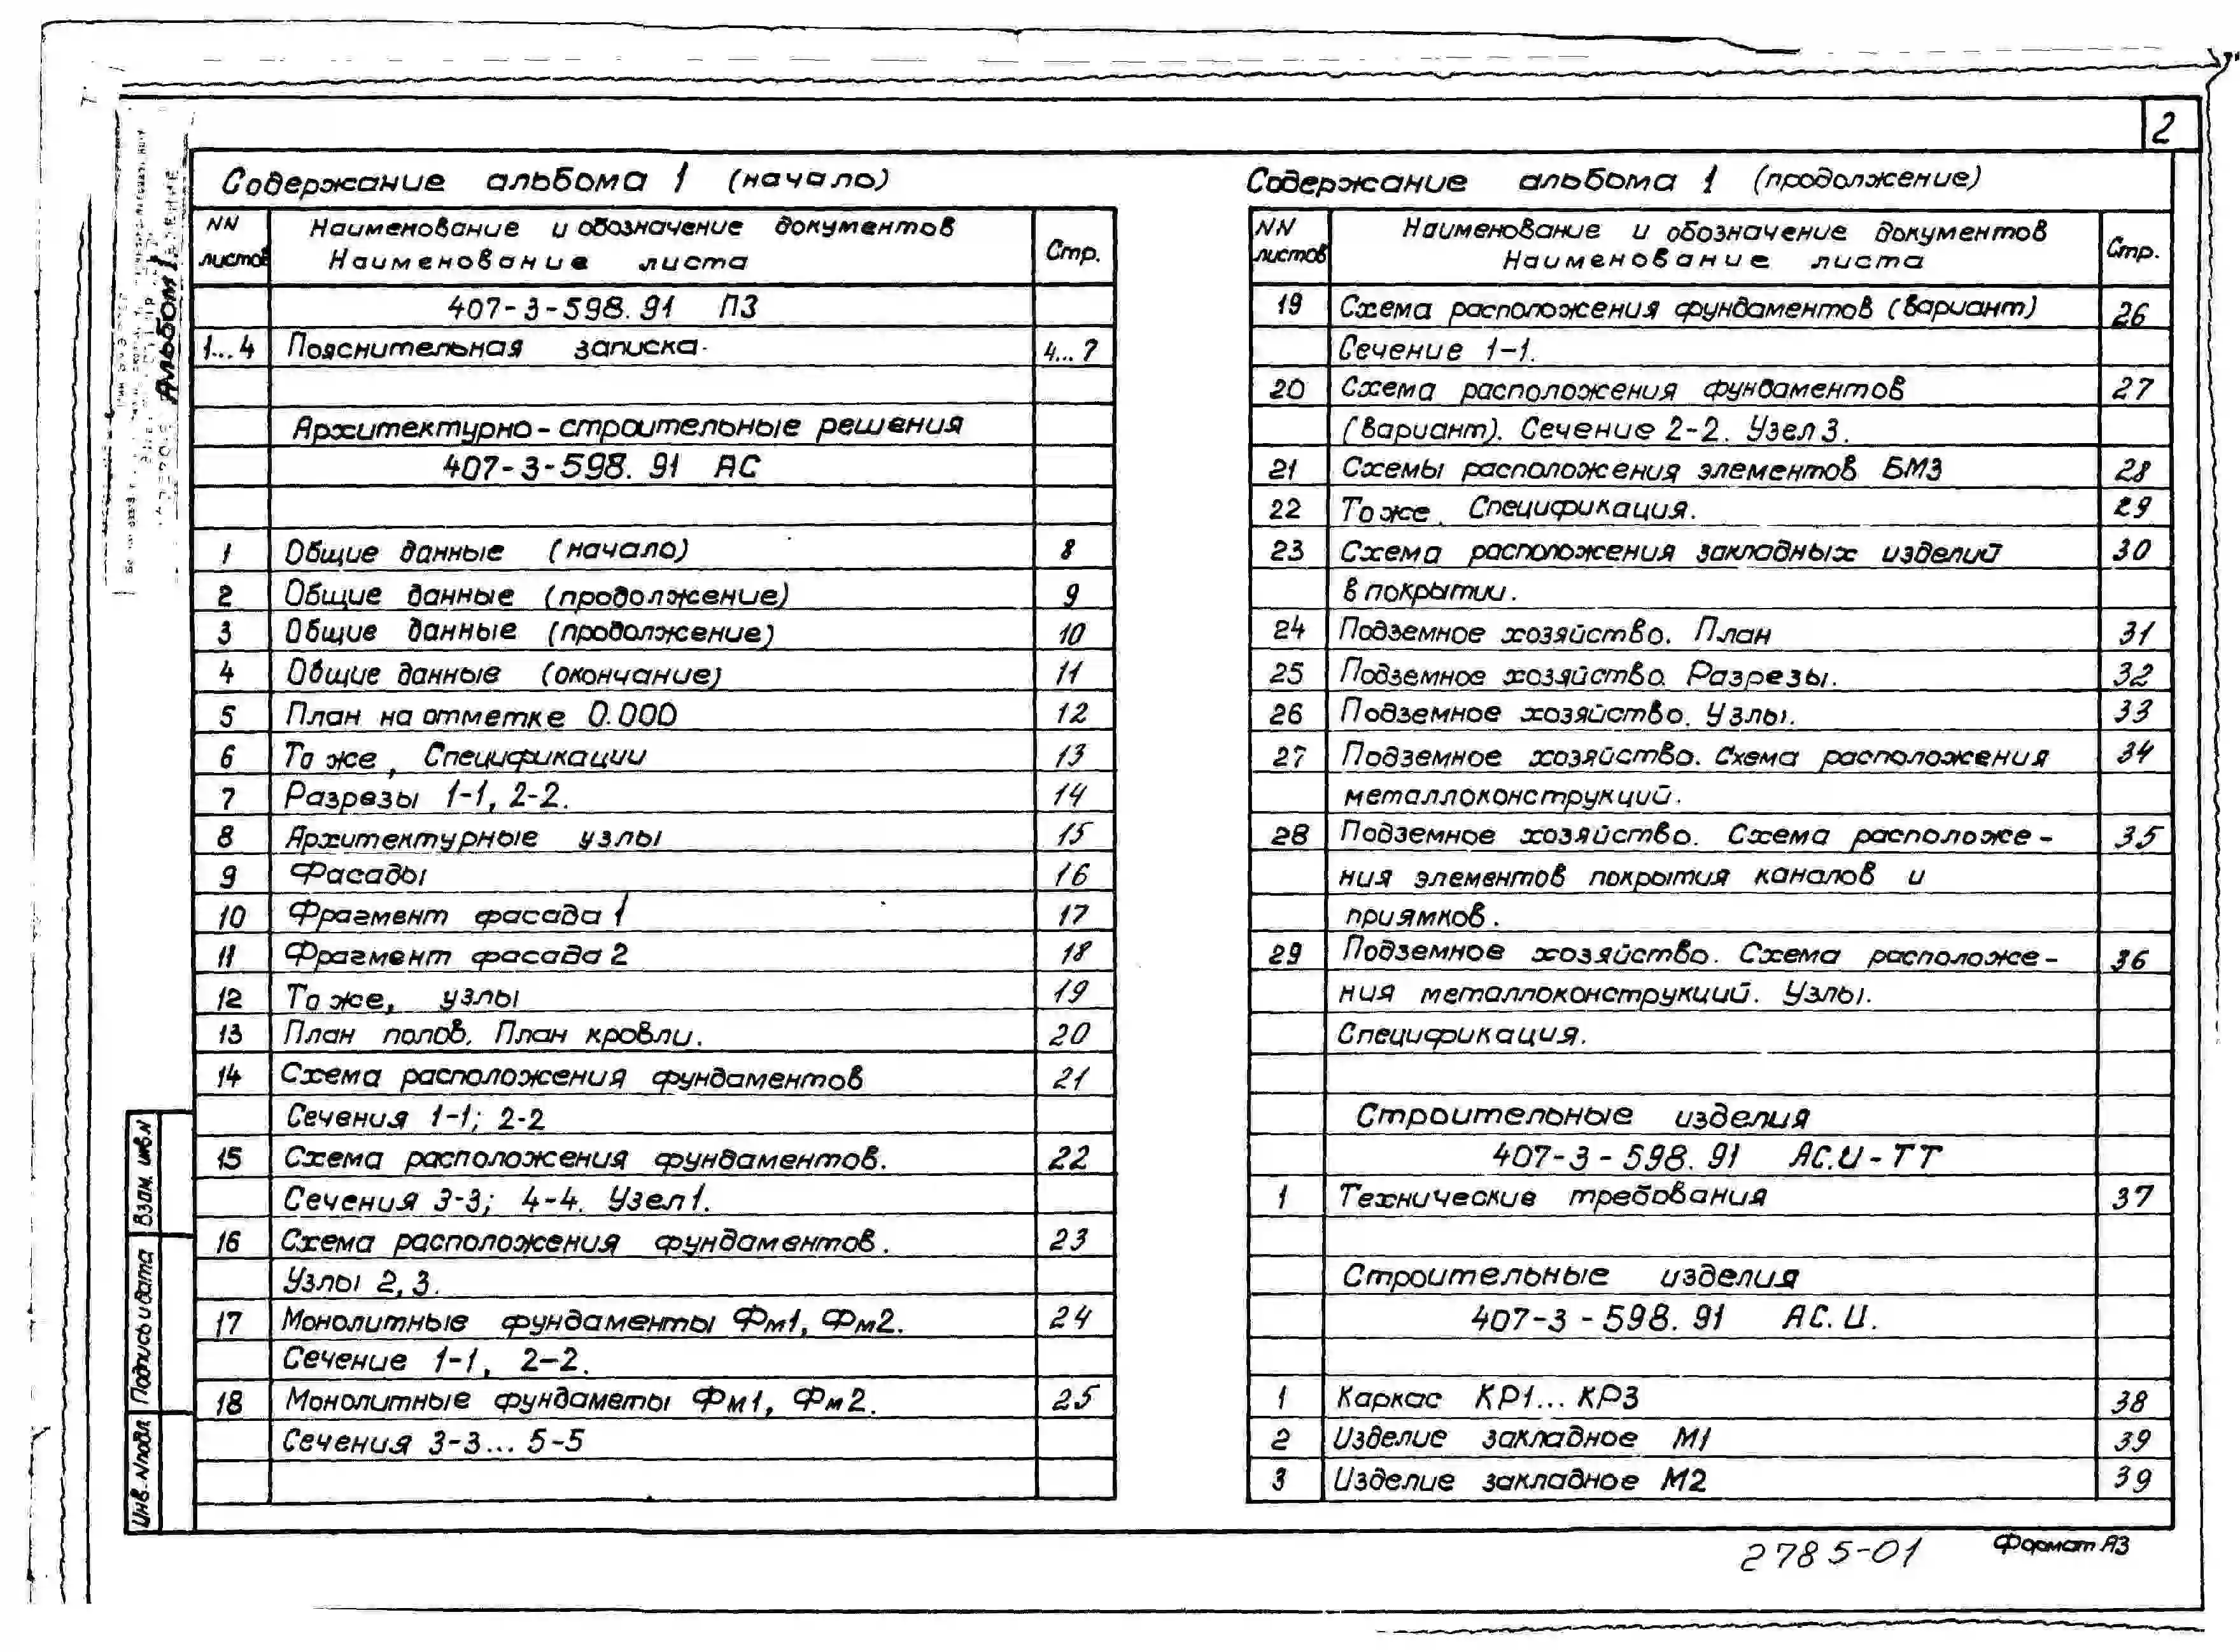 2
Содержание альбома 1 (начало)
NN листов Наименование и обозначение документов Наименование листа Стр.
407-3-598.91 ПЗ
1...4 Пояснительная записка 4...7
Архитектурно-строительные решения
407-3-598.91 АС
1 Общие данные (начало) 8
2 Общие данные (продолжение) 9
3 Общие данные (продолжение) 10
4 Общие данные (окончание) 11
5 План на отметке 0.000 12
6 То же, Спецификации 13
7 Разрезы 1-1, 2-2. 14
8 Архитектурные узлы 15
9 Фасады 16
10 Фрагмент фасада 1 17
11 Фрагмент фасада 2 18
12 То же, узлы 19
13 План полов. План кровли. 20
14 Схема расположения фундаментов 21
Сечения 1-1; 2-2
15 Схема расположения фундаментов. 22
Сечения 3-3; 4-4. Узел 1.
16 Схема расположения фундаментов. 23
Узлы 2,3.
17 Монолитные фундаменты Фм1, Фм2. 24
Сечение 1-1, 2-2.
18 Монолитные фундаметы Фм1, Фм2. 25
Сечения 3-3... 5-5
Содержание альбома 1 (продолжение)
NN листов Наименование и обозначение документов Наименование листа Стр.
19 Схема расположения фундаментов (вариант) 26
Сечение 1-1.
20 Схема расположения фундаментов 27
(вариант). Сечение 2-2. Узел 3.
21 Схемы расположения элементов БМЗ 28
22 То же. Спецификация. 29
23 Схема расположения закладных изделий 30
в покрытии.
24 Подземное хозяйство. План 31
25 Подземное хозяйство. Разрезы. 32
26 Подземное хозяйство. Узлы. 33
27 Подземное хозяйство. Схема расположения 34
металлоконструкций.
28 Подземное хозяйство. Схема расположе- 35
ния элементов покрытия каналов и
приямков.
29 Подземное хозяйство. Схема расположе- 36
ния металлоконструкций. Узлы.
Спецификация.
Строительные изделия
407-3-598.91 АС.И-ТТ
1 Технические требования 37
Строительные изделия
407-3-598.91 АС.И.
1 Каркас КР1... КР3 38
2 Изделие закладное М1 39
3 Изделие закладное М2 39
Альбом 1
Взам. инв.N
Подпись и дата
Инв. N подл
2785-01
Формат А3